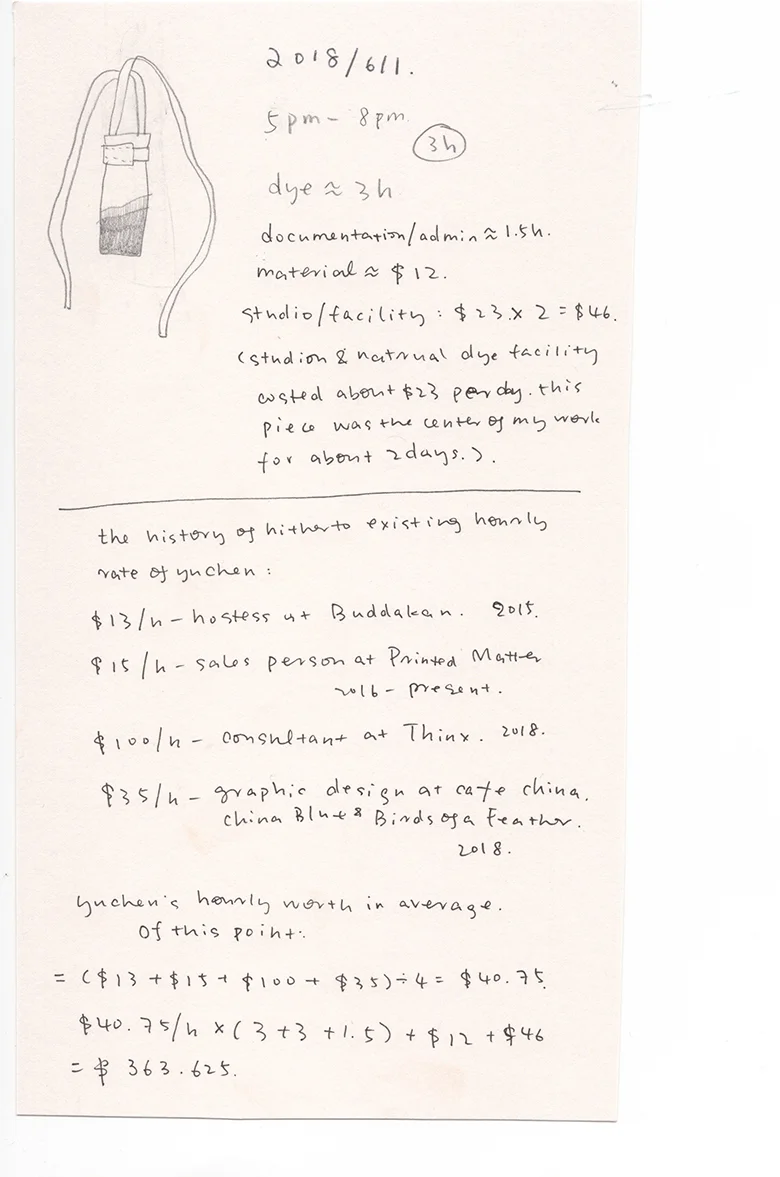 2018/6/1.
5pm - 8pm.
3h
dye ≈ 3h
documentation/admin ≈ 1.5h.
material ≈ $12.
studio/facility : $23 x 2 = $46.
(studion & natrual dye facility
costed about $23 per day. this
piece was the center of my work
for about 2 days.).
the history of hitherto existing hourly
rate of yuchen :
$13/h - hostess at Buddakan. 2015.
$15/h - sales person at Printed Matter
2016 - present.
$100/h - consultant at Thinx. 2018.
$35/h - graphic design at cafe china,
china Blue & Birds of a Feather.
2018.
yuchen's hourly worth in average.
Of this point:
= ($13 + $15 + $100 + $35) ÷ 4 = $40.75
$40.75/h x (3 + 3 + 1.5) + $12 + $46
= $ 363.625.